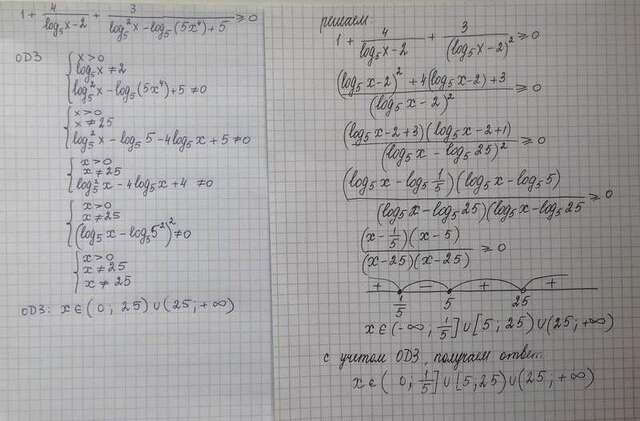 1 + 4/(log₅x-2) + 3/(log₅²x - log₅(5x⁴) + 5) ≥ 0
ОДЗ
{ x > 0
log₅x ≠ 2
log₅²x - log₅(5x⁴) + 5 ≠ 0
{ x > 0
x ≠ 25
log₅²x - log₅5 - 4log₅x + 5 ≠ 0
{ x > 0
x ≠ 25
log₅²x - 4log₅x + 4 ≠ 0
{ x > 0
x ≠ 25
(log₅x - log₅5²)² ≠ 0
{ x > 0
x ≠ 25
x ≠ 25
ОДЗ: x ∈ (0; 25) ∪ (25; +∞)
решаем:
1 + 4/(log₅x-2) + 3/(log₅x-2)² ≥ 0
((log₅x-2)² + 4(log₅x-2) + 3)/(log₅x-2)² ≥ 0
(log₅x-2+3)(log₅x-2+1)/(log₅x - log₅25)² ≥ 0
(log₅x - log₅ 1/5)(log₅x - log₅5)/(log₅x - log₅25)(log₅x - log₅25 ≥ 0
(x - 1/5)(x-5)/(x-25)(x-25) ≥ 0
+ − + +
1/5 5 25
x ∈ (-∞; 1/5] ∪ [5; 25) ∪ (25; +∞)
с учетом ОДЗ, получаем ответ:
x ∈ (0; 1/5] ∪ [5; 25) ∪ (25; +∞)